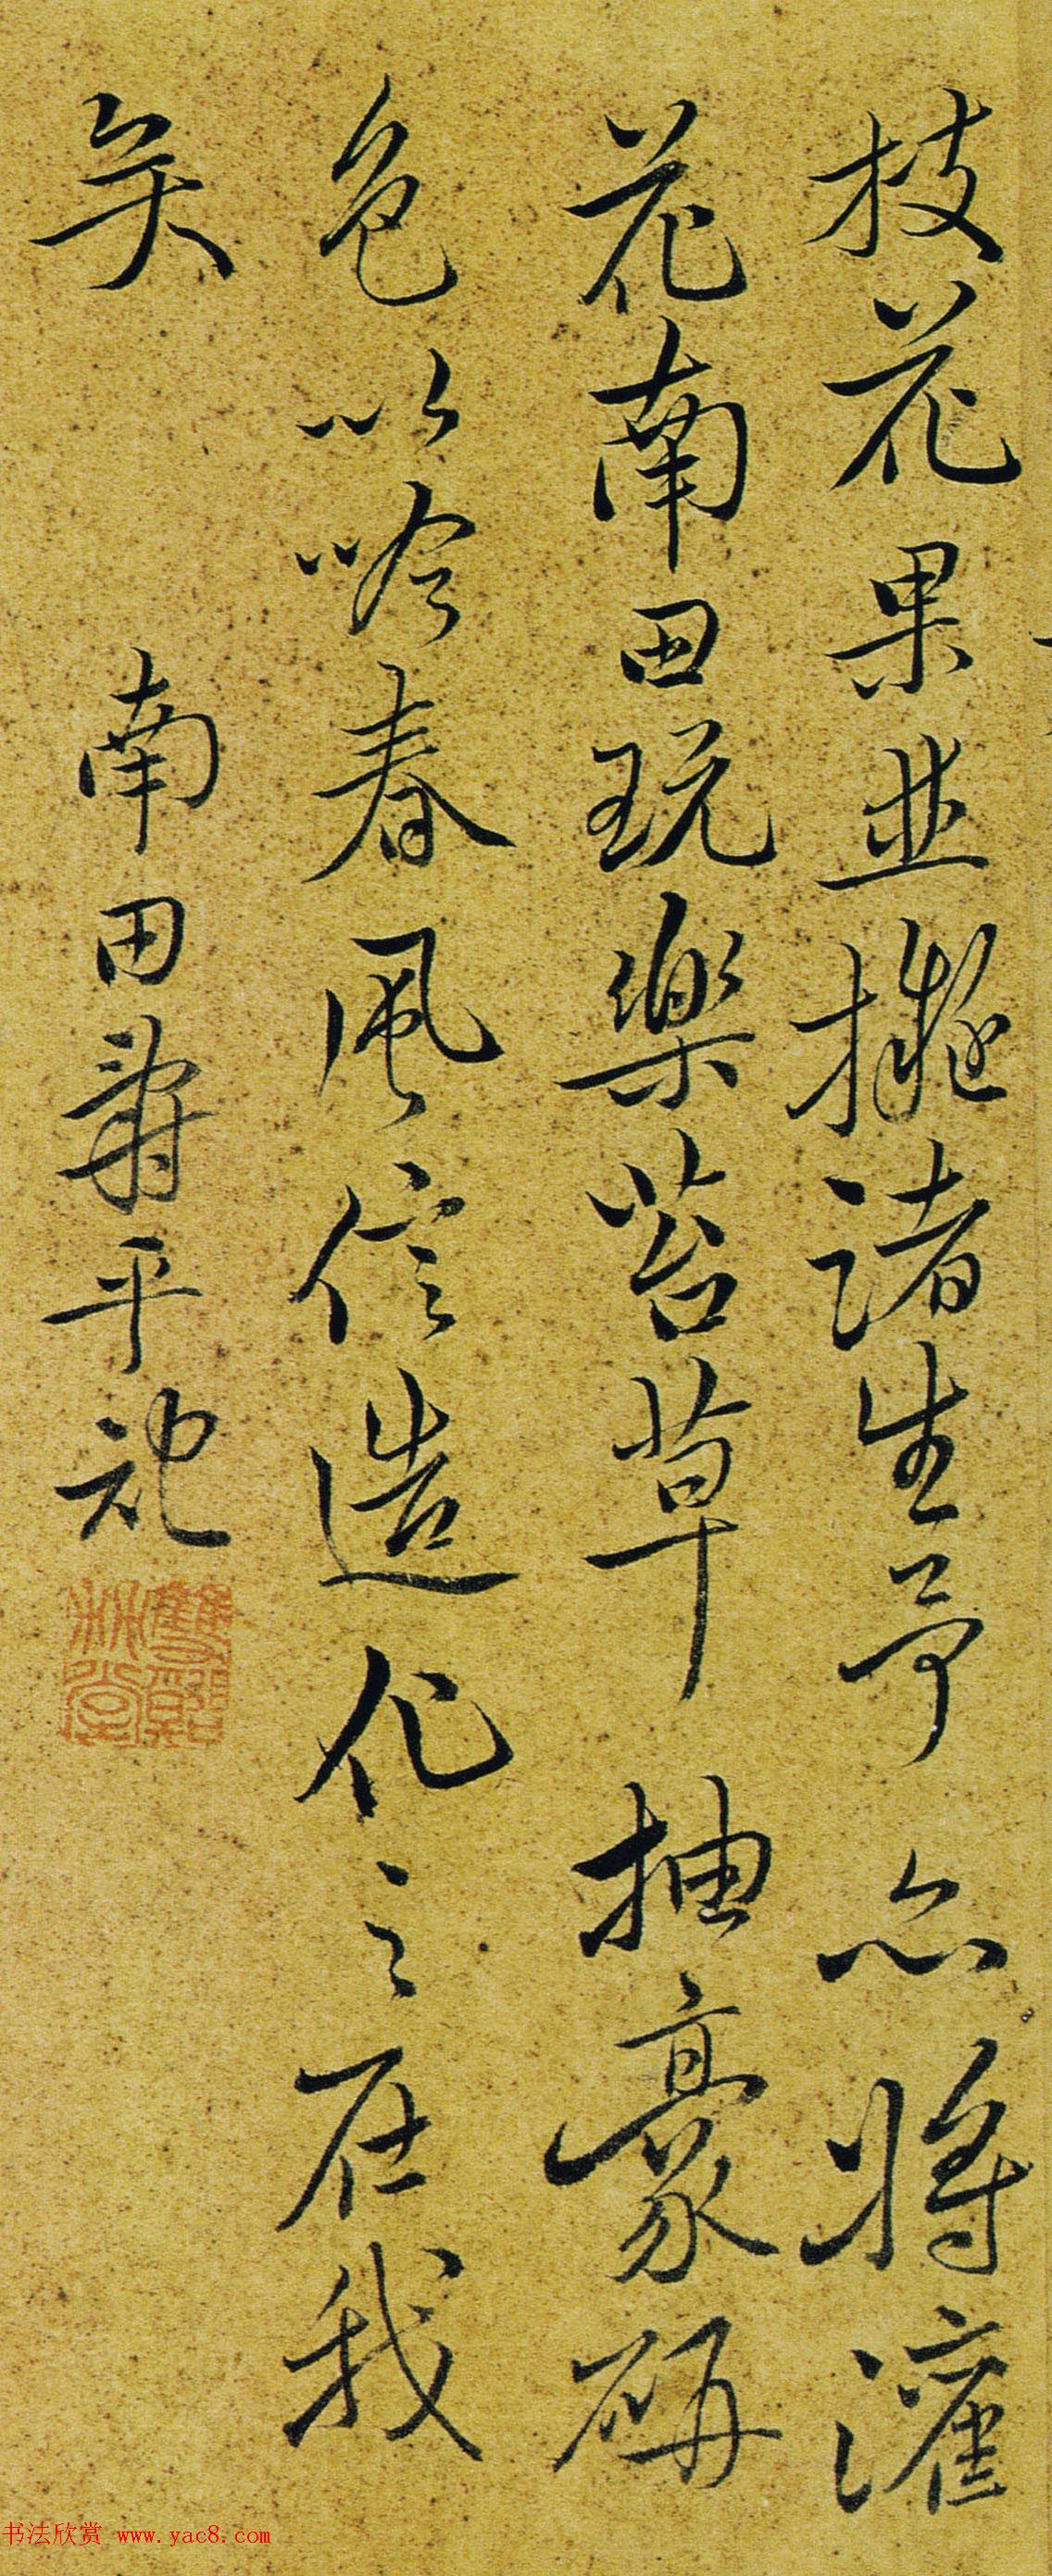 枝花果並擬諸生予亦將灌
花南田玩樂苔草抽豪研
色以吟春風信造化之在我
矣
南田壽平記
书法欣赏 www.yac8.com